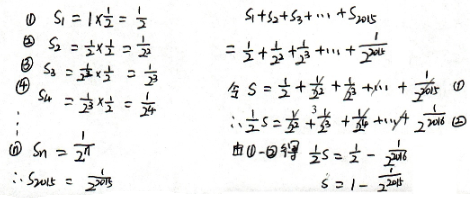 ① S₁ = 1×1/2 = 1/2
② S₂ = 1/2×1/2 = 1/2²
③ S₃ = 1/2²×1/2 = 1/2³
④ S₄ = 1/2³×1/2 = 1/2⁴
⋮
ⓝ Sn = 1/2ⁿ
∴ S₂₀₁₅ = 1/2²⁰¹⁵
S₁+S₂+S₃+⋯+S₂₀₁₅
= 1/2 + 1/2² + 1/2³ + ⋯ + 1/2²⁰¹⁵
令 S = 1/2 + 1/2² + 1/2³ + ⋯ + 1/2²⁰¹⁵ ①
∴ 1/2 S = 1/2² + 1/2³ + 1/2⁴ + ⋯ + 1/2²⁰¹⁶ ②
由①-②得 1/2 S = 1/2 - 1/2²⁰¹⁶
S = 1 - 1/2²⁰¹⁵